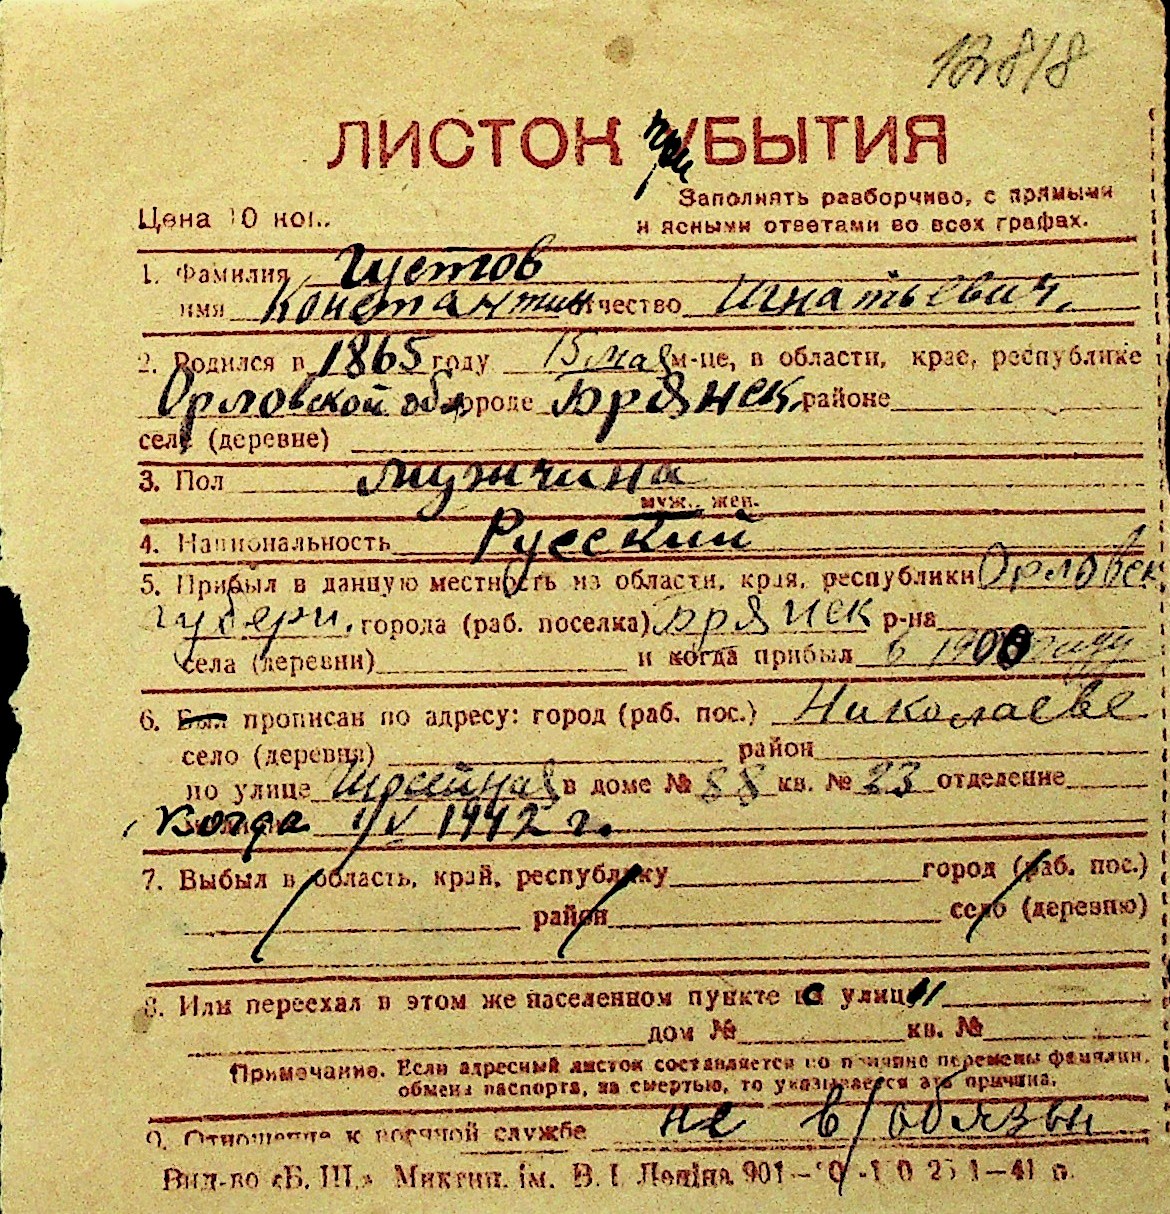 12818
ЛИСТОК при УБЫТИЯ
Заполнять разборчиво, с прямыми
Цена 10 коп. и ясными ответами во всех графах.
1. Фамилия Густов
имя Константин отчество Игнатьевич.
2. Родился в 1865 году 15 мая м-це, в области, крае, республике
Орловской обл городе Брянск районе
селе (деревне)
3. Пол мужчина
муж., жен.
4. Национальность Русский
5. Прибыл в данную местность из области, края, республики Орловск
губерн. города (раб. поселка) Брянск р-на
села (деревни) и когда прибыл в 1900 году
6. Был прописан по адресу: город (раб. пос.) Николаеве
село (деревня) район
по улице в доме № 88 кв. № 23 отделение
Когда 1/V 1942 г.
7. Выбыл в область, край, республику город (раб. пос.)
район село (деревню)
8. Или переехал в этом же населенном пункте с улицы
дом № кв. №
Примечание. Если адресный листок составляется по причине перемены фамилии,
обмена паспорта, за смертью, то указывается эта причина.
9. Отношение к военной службе не в/обязан
Вид-во «Б. Ш.» Миктип. ім. В. І. Леніна 901—